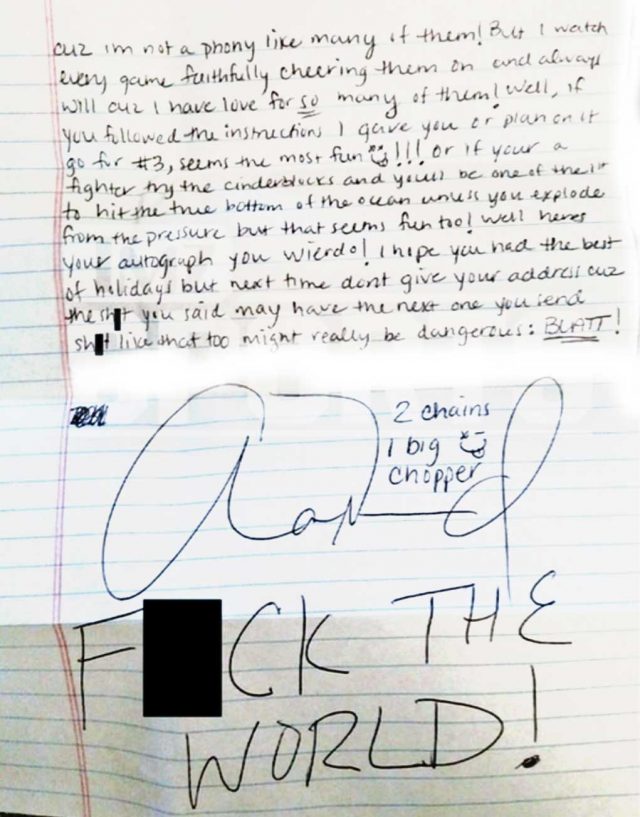 cuz im not a phony like many if them! But I watch
every game faithfully cheering them on and always
will cuz I have love for so many of them! Well, if
you followed the instructions I gave you or plan on it
go for #3, seems the most fun !!! or if your a
fighter try the cinderblocks and youll be one of the 1st
to hit the true bottom of the ocean unless you explode
from the pressure but that seems fun too! Well heres
your autograph you wierdo! I hope you had the best
of holidays but next time dont give your address cuz
the sh t you said may have the next one you send
sh t like that too might really be dangerous: BLATT!
2 chains
1 big
chopper
F CK THE
WORLD!